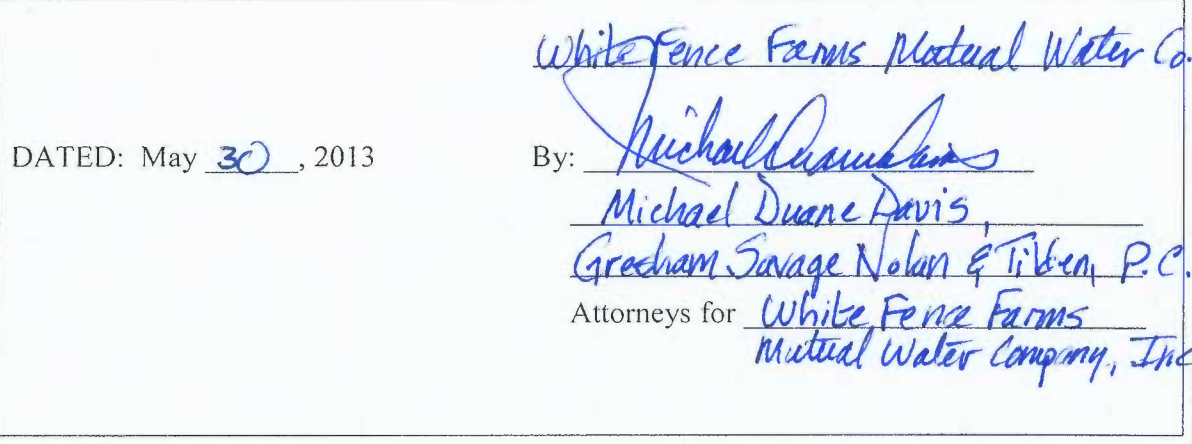 White Fence Farms Mutual Water Co.
DATED: May 30, 2013 By: Michael Duane Davis
Michael Duane Davis,
Gresham Savage Nolan & Tilden, P.C.
Attorneys for White Fence Farms
Mutual Water Company, Inc